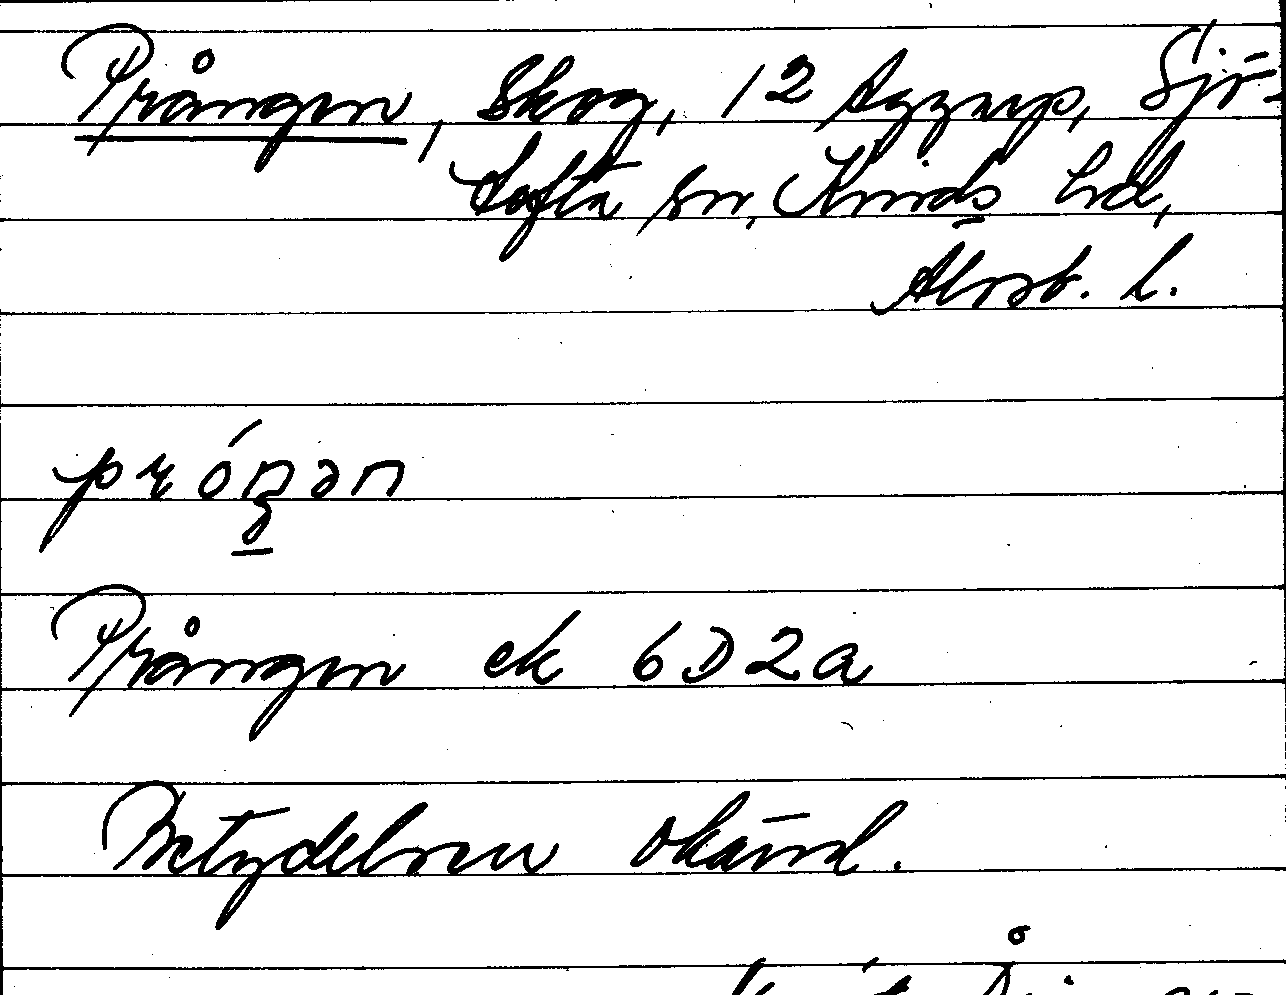 Prången, Skog, 12 Aggarp, Sjö-
tofta sn, Kinds hd,
Älvsb. l.
próŋən
Prången ek 6D2a
Betydelsen okänd.